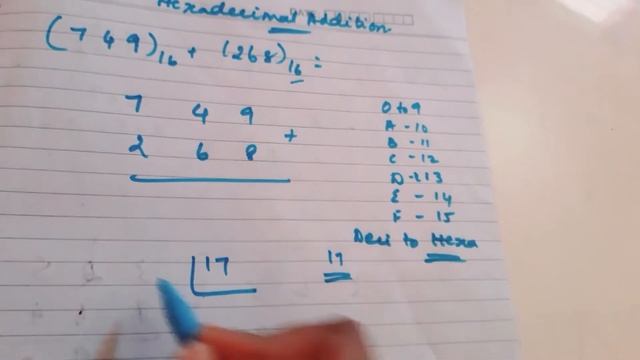 Hexadecimal Addition
(749)16 + (268)16 =
7 4 9
2 6 8 +
0 to 9
A - 10
B - 11
C - 12
D - 13
E - 14
F - 15
Deci to Hexa
17
17